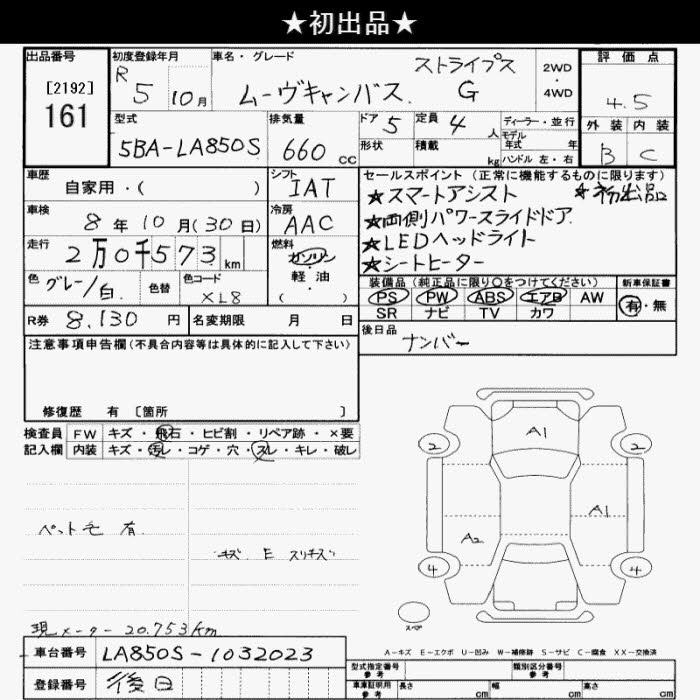 ★初出品★
出品番号
[2192]
161
初度登録年月
R 5 10月
車名・グレード
ストライプス
ムーヴキャンバス G
2WD
・
4WD
評価点
4.5
外装 内装
B C
型式
5BA-LA850S
排気量
660 cc
ドア 5
定員 4 人
ディーラー・並行
モデル年式 年
形状
積載 kg
ハンドル 左・右
車歴
自家用・( )
シフト
IAT
セールスポイント (正常に機能するものに限ります)
★スマートアシスト ★初出品
★両側パワースライドドア
★LEDヘッドライト
★シートヒーター
車検
8年10月(30日)
冷房
AAC
走行
2万0千573km
燃料
ガソリン
軽・油
( )
色
グレー/白
色替
色コード
XL8
装備品 (純正品に限り○をつけてください)
PS PW ABS エアB AW
SR ナビ TV カワ
新車保証書
有・無
R券 8,130 円
名変期限 月 日
後日品
ナンバー
注意事項申告欄(不具合内容等は具体的に記入して下さい)
修復歴 有 [箇所 ]
検査員記入欄
FW キズ・飛石・ヒビ割・リペア跡・×要
内装 キズ・汚レ・コゲ・穴・スレ・キレ・破レ
ペット毛 有
キズ E スリキズ
現メーター 20.753km
A1
2 2
A1
A2
4 4
スペア
A-キズ E-エクボ U-凹み W-補修跡 S-サビ C-腐食 XX-交換済
車台番号 LA850S-1032023
登録番号 後日
型式指定番号
参考
類別区分番号
参考
車庫証明用
参考
長さ cm
幅 cm
高さ cm